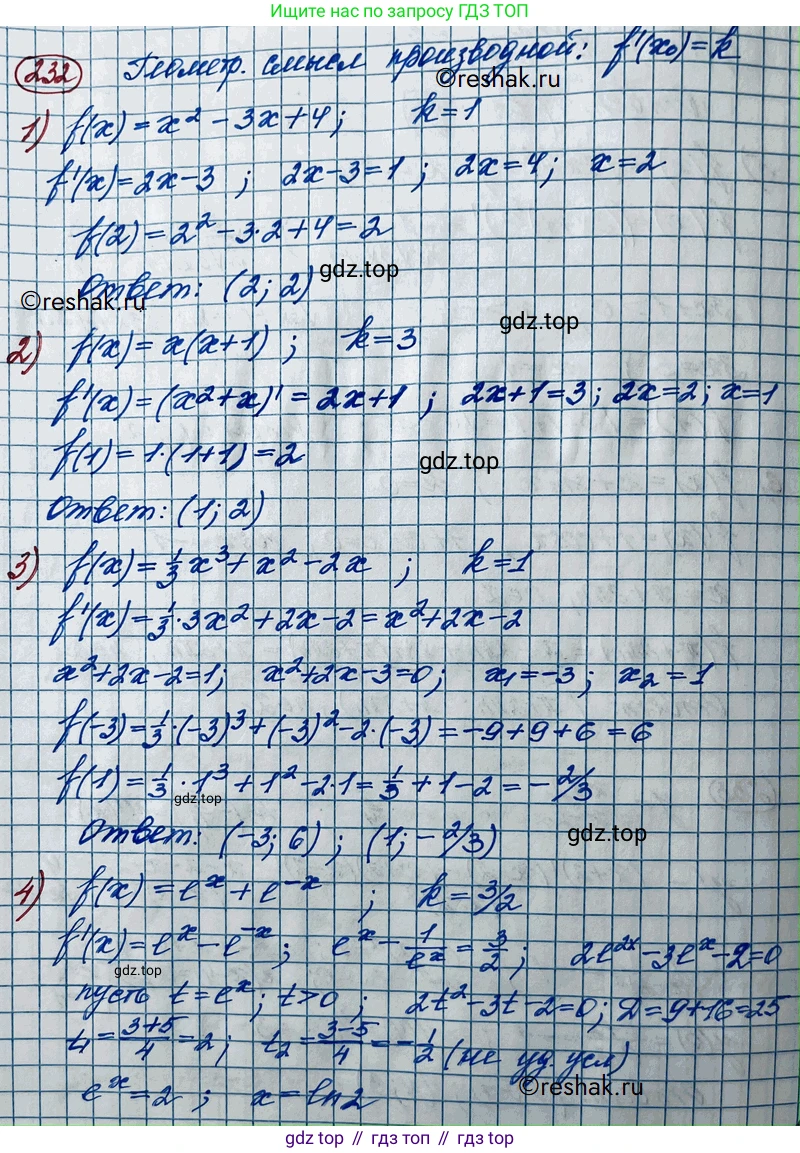 Ищите нас по запросу ГДЗ ТОП
232 Геометр. смысл производной: f'(x₀)=k
©reshak.ru
1) f(x)=x²-3x+4; k=1
f'(x)=2x-3; 2x-3=1; 2x=4; x=2
f(2)=2²-3·2+4=2
Ответ: (2; 2)
gdz.top
©reshak.ru
gdz.top
2) f(x)=x(x+1); k=3
f'(x)=(x²+x)'=2x+1; 2x+1=3; 2x=2; x=1
f(1)=1·(1+1)=2
gdz.top
Ответ: (1; 2)
3) f(x)=⅓x³+x²-2x; k=1
f'(x)=⅓·3x²+2x-2=x²+2x-2
x²+2x-2=1; x²+2x-3=0; x₁=-3; x₂=1
f(-3)=⅓·(-3)³+(-3)²-2·(-3)=-9+9+6=6
f(1)=⅓·1³+1²-2·1=⅓+1-2=-2/3
gdz.top
Ответ: (-3; 6); (1; -2/3)
gdz.top
4) f(x)=eˣ+e⁻ˣ; k=3/2
f'(x)=eˣ-e⁻ˣ; eˣ-1/eˣ=3/2; 2e²ˣ-3eˣ-2=0
gdz.top
пусть t=eˣ; t>0; 2t²-3t-2=0; D=9+16=25
t₁=(3+5)/4=2; t₂=(3-5)/4=-1/2 (не уд. усл)
eˣ=2; x=ln2
©reshak.ru
gdz top // гдз топ // gdz.top